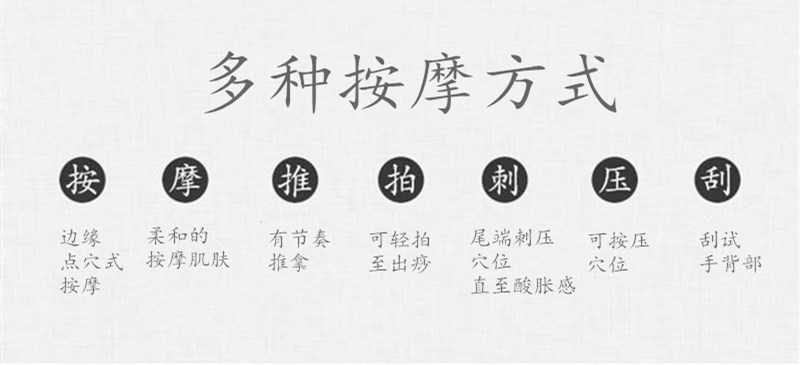 多种按摩方式
按 摩 推 拍 刺 压 刮
边缘
点穴式
按摩
柔和的
按摩肌肤
有节奏
推拿
可轻拍
至出痧
尾端刺压
穴位
直至酸胀感
可按压
穴位
刮试
手背部